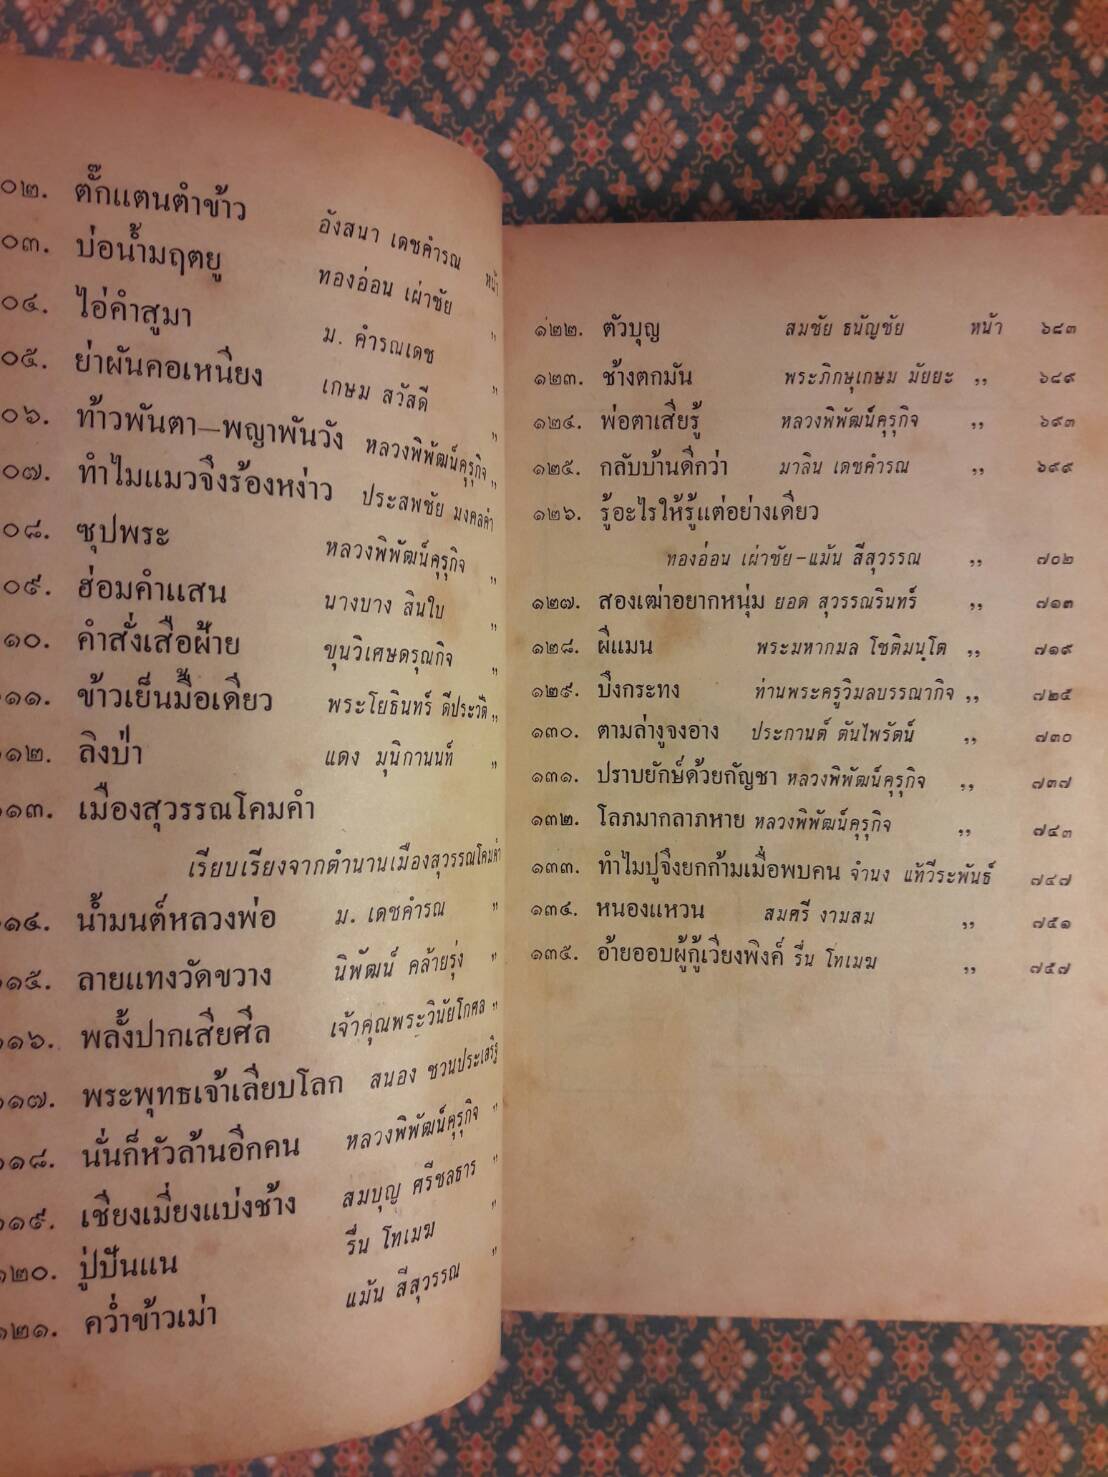 ๐๒. ตั๊กแตนตำข้าว อังสนา เดชคำรณ หน้า
๐๓. บ่อน้ำมฤตยู ทองอ่อน เผ่าชัย ,,
๐๔. ไอ่คำสูมา ม. คำรณเดช ,,
๐๕. ย่าผันคอเหนียง เกษม สวัสดี ,,
๐๖. ท้าวพันตา—พญาพันวัง หลวงพิพัฒน์คุรุกิจ ,,
๐๗. ทำไมแมวจึงร้องหง่าว ประสพชัย มงคลคำ
๐๘. ซุปพระ หลวงพิพัฒน์คุรุกิจ ,,
๐๙. ฮ่อมคำแสน นางบาง สินใบ ,,
๑๐. คำสั่งเสือฝ้าย ขุนวิเศษดรุณกิจ ,,
๑๑๑. ข้าวเย็นมื้อเดียว พระโยธินทร์ ดีประวัติ ,,
๑๑๒. ลิงป่า แดง มุนิกานนท์ ,,
๑๑๓. เมืองสุวรรณโคมคำ
เรียบเรียงจากตำนานเมืองสุวรรณโคมคำ
๑๑๔. น้ำมนต์หลวงพ่อ ม. เดชคำรณ ,,
๑๑๕. ลายแทงวัดขวาง นิพัฒน์ คล้ายรุ่ง ,,
๑๑๖. พลั้งปากเสียศีล เจ้าคุณพระวินัยโกศล ,,
๑๑๗. พระพุทธเจ้าเลียบโลก สนอง ชวนประเสริฐ
๑๑๘. นั่นก็หัวล้านอีกคน หลวงพิพัฒน์คุรุกิจ ,,
๑๑๙. เชียงเมี่ยงแบ่งช้าง สมบุญ ศรีชลธาร ,,
๑๒๐. ปู่ปันแน รื่น โทเมฆ ,,
๑๒๑. คว่ำข้าวเม่า แม้น สีสุวรรณ ,,
๑๒๒. ตัวบุญ สมชัย ธนัญชัย หน้า ๖๘๓
๑๒๓. ช้างตกมัน พระภิกษุเกษม มัยยะ ,, ๖๘๙
๑๒๔. พ่อตาเสียรู้ หลวงพิพัฒน์คุรุกิจ ,, ๖๙๓
๑๒๕. กลับบ้านดีกว่า มาลิน เดชคำรณ ,, ๖๙๙
๑๒๖. รู้อะไรให้รู้แต่อย่างเดียว
ทองอ่อน เผ่าชัย–แม้น สีสุวรรณ ,, ๗๐๒
๑๒๗. สองเฒ่าอยากหนุ่ม ยอด สุวรรณรินทร์ ,, ๗๑๓
๑๒๘. ผีแมน พระมหากมล โชติมนฺโต ,, ๗๑๙
๑๒๙. บึงกระทง ท่านพระครูวิมลบรรณากิจ ,, ๗๒๕
๑๓๐. ตามล่างูจงอาง ประกานต์ ตันไพรัตน์ ,, ๗๓๐
๑๓๑. ปราบยักษ์ด้วยกัญชา หลวงพิพัฒน์คุรุกิจ ,, ๗๓๗
๑๓๒. โลภมากลาภหาย หลวงพิพัฒน์คุรุกิจ ,, ๗๔๓
๑๓๓. ทำไมปูจึงยกก้ามเมื่อพบคน จำนง แท้วีระพันธ์ ๗๔๗
๑๓๔. หนองแหวน สมศรี งามสม ,, ๗๕๑
๑๓๕. อ้ายออบผู้กู้เวียงพิงค์ รื่น โทเมฆ ,, ๗๕๗